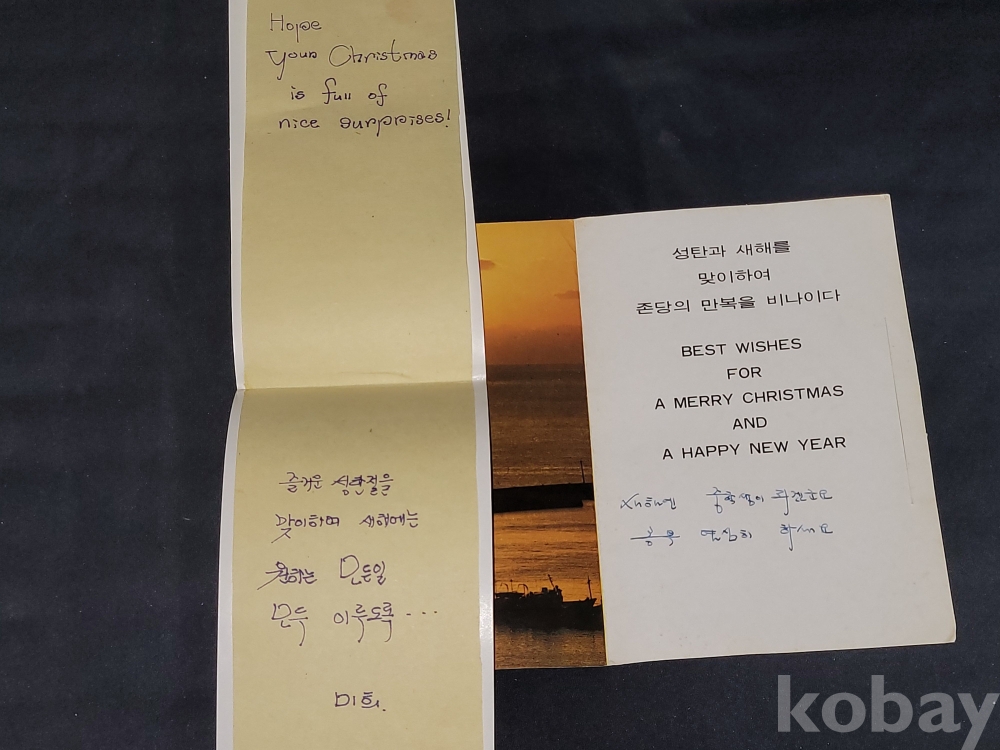 Hope
your Christmas
is full of
nice surprises!
즐거운 성탄절을
맞이하여 새해에는
원하는 모든일
모두 이루도록...
미희.
성탄과 새해를
맞이하여
존당의 만복을 비나이다
BEST WISHES
FOR
A MERRY CHRISTMAS
AND
A HAPPY NEW YEAR
새해엔 중학생이 되겠군요
공부 열심히 하세요
kobay